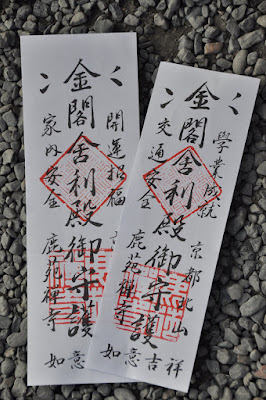 學業成就
京都北山
金閣舍利殿御守護
交通安全
鹿苑禪寺
如意吉祥
開運招福
金閣舍利殿御守護
家内安全
鹿苑禪寺
如意